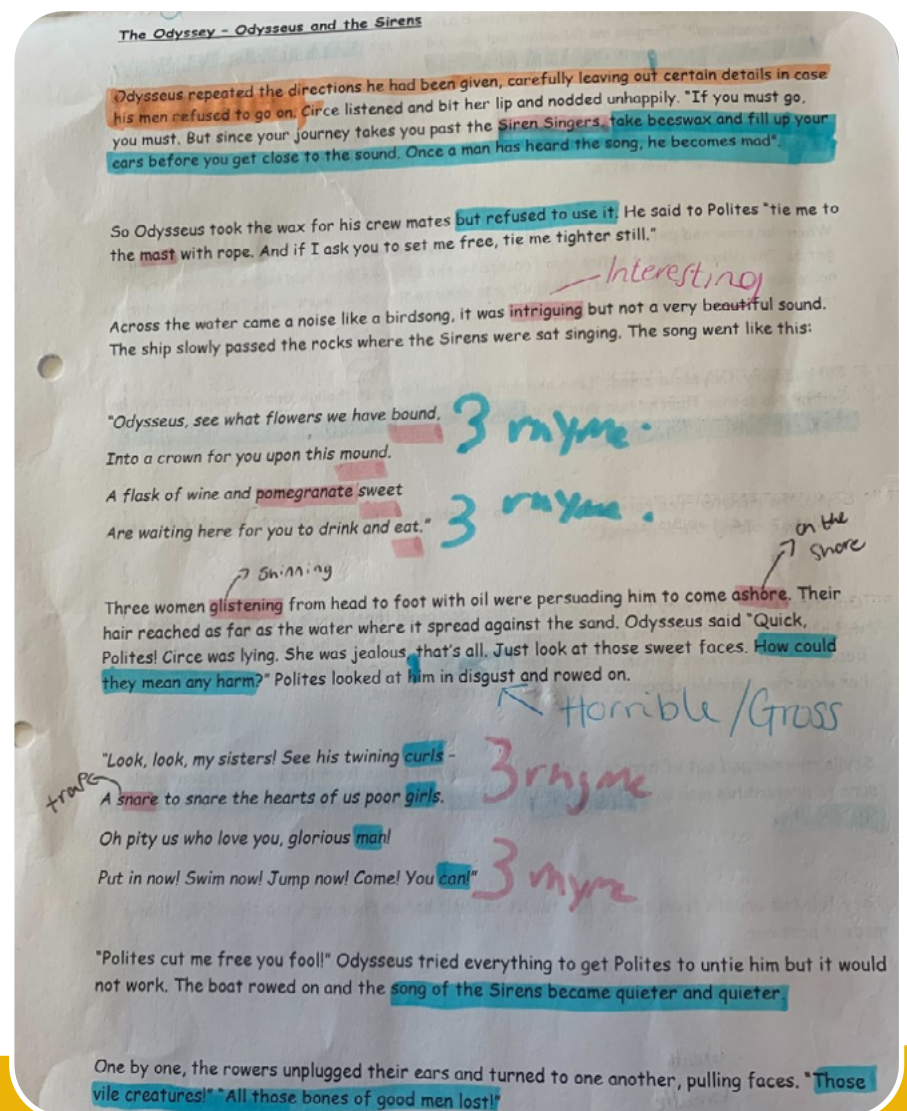 The Odyssey – Odysseus and the Sirens
Odysseus repeated the directions he had been given, carefully leaving out certain details in case
his men refused to go on. Circe listened and bit her lip and nodded unhappily. "If you must go,
you must. But since your journey takes you past the Siren Singers, take beeswax and fill up your
ears before you get close to the sound. Once a man has heard the song, he becomes mad".
So Odysseus took the wax for his crew mates but refused to use it. He said to Polites "tie me to
the mast with rope. And if I ask you to set me free, tie me tighter still."
Interesting
Across the water came a noise like a birdsong, it was intriguing but not a very beautiful sound.
The ship slowly passed the rocks where the Sirens were sat singing. The song went like this:
"Odysseus, see what flowers we have bound,
Into a crown for you upon this mound.
3 rhyme.
A flask of wine and pomegranate sweet
Are waiting here for you to drink and eat."
3 rhyme.
on the
shore
shinning
Three women glistening from head to foot with oil were persuading him to come ashore. Their
hair reached as far as the water where it spread against the sand. Odysseus said "Quick,
Polites! Circe was lying. She was jealous, that's all. Just look at those sweet faces. How could
they mean any harm?" Polites looked at him in disgust and rowed on.
Horrible/Gross
"Look, look, my sisters! See his twining curls –
trape
A snare to snare the hearts of us poor girls.
3 rhyme
Oh pity us who love you, glorious man!
Put in now! Swim now! Jump now! Come! You can!"
3 rhyme
"Polites cut me free you fool!" Odysseus tried everything to get Polites to untie him but it would
not work. The boat rowed on and the song of the Sirens became quieter and quieter.
One by one, the rowers unplugged their ears and turned to one another, pulling faces. "Those
vile creatures!" "All those bones of good men lost!"